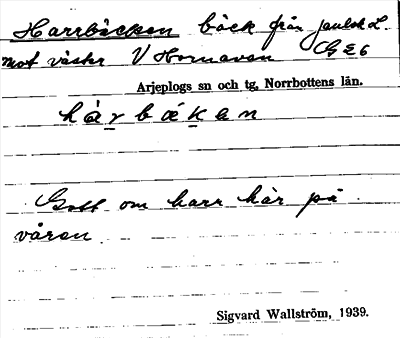 Harrbäcken bäck från Jaulok L.
mot väster V Hornavan G E 6
Arjeplogs sn och tg, Norrbottens län.
hàrbäkan
Gott om harr här på
våren
Sigvard Wallström, 1939.